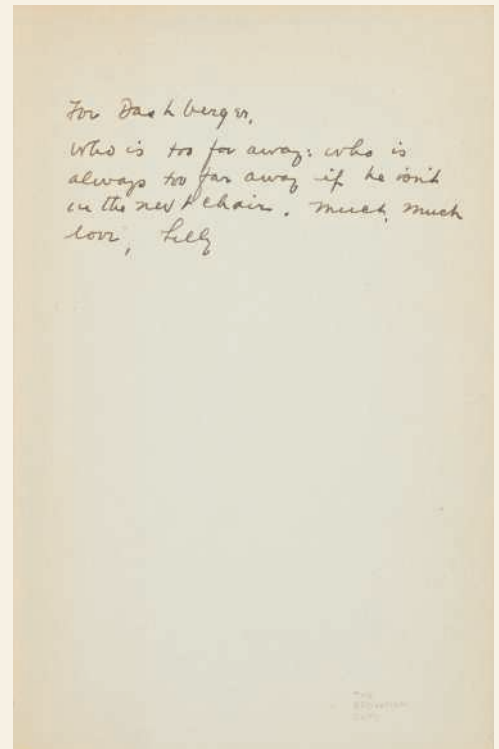 For Dashberger,
who is too far away: who is
always too far away if he isn't
in the next chair. Much, much
love, Lilly